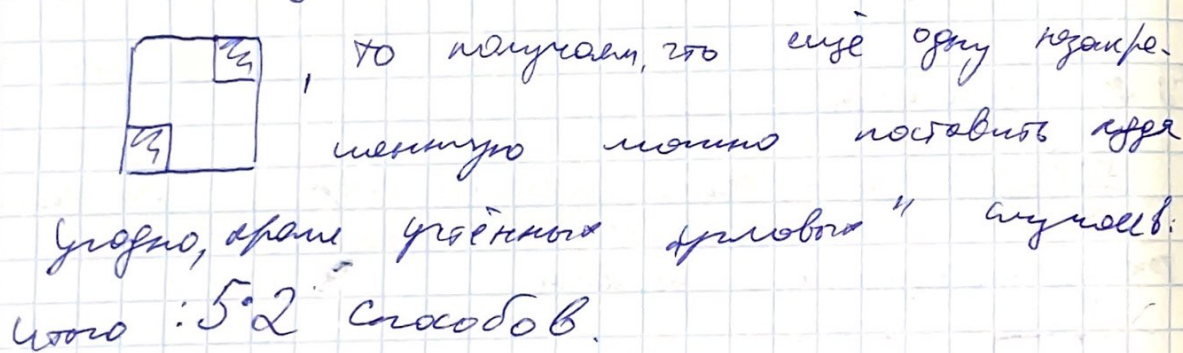 , то получаем, что ещё одну закра-
шенную можно поставить куда
угодно, кроме учтённых "угловых" случаев:
итого : 5·2 способов.